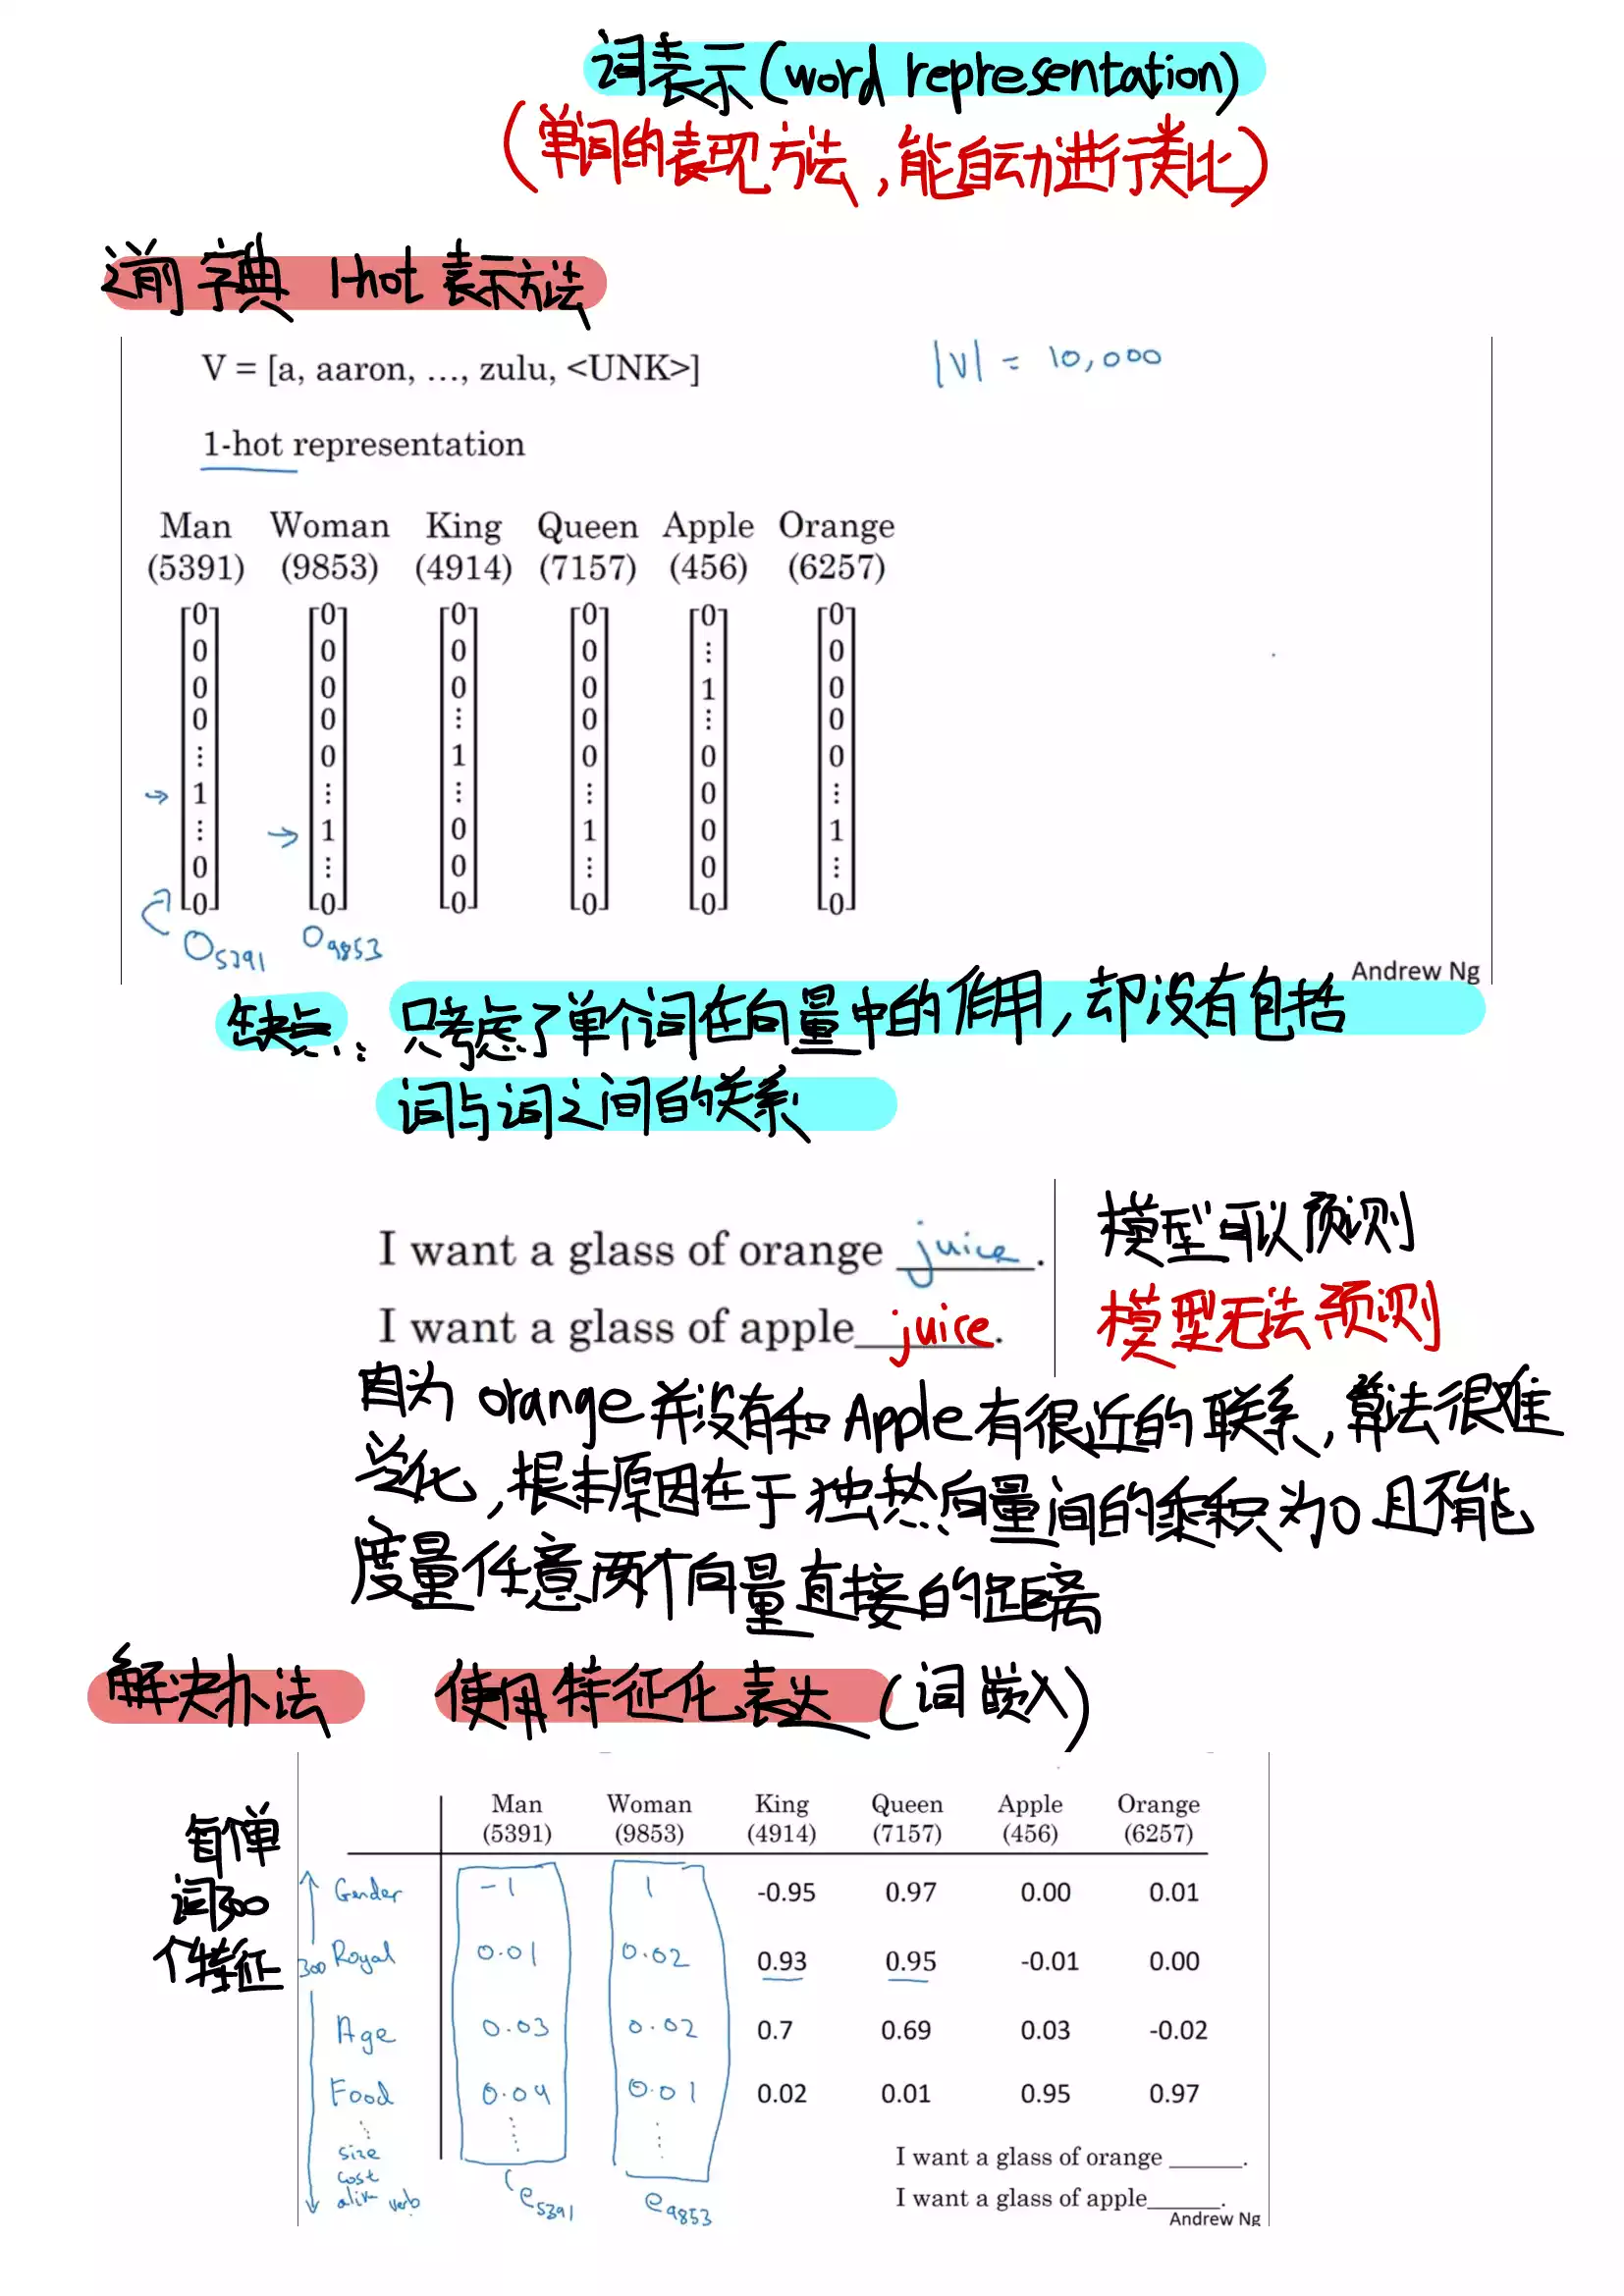 词表示(word representation)
(单词的表现方法,能自动进行类比)
之前 字典 1-hot 表示方法
V = [a, aaron, …, zulu, <UNK>]
|V| = 10,000
1-hot representation
Man Woman King Queen Apple Orange
(5391) (9853) (4914) (7157) (456) (6257)
0 0 0 0 0 0
0 0 0 0 ⋮ 0
0 0 0 0 1 0
0 0 ⋮ 0 ⋮ 0
⋮ 0 1 0 0 0
→ 1 ⋮ ⋮ ⋮ 0 ⋮
⋮ → 1 0 1 0 1
0 ⋮ 0 ⋮ 0 ⋮
0 0 0 0 0 0
O5391 O9853
Andrew Ng
缺点: 只考虑了单个词在向量中的作用,却没有包括
词与词之间的联系
I want a glass of orange juice. 模型可以预测
I want a glass of apple juice. 模型无法预测
因为 orange 并没有和 Apple 有很近的联系,算法很难
泛化,根本原因在于独热向量间的乘积为0 且不能
度量任意两个向量直接的距离
解决办法 使用特征化表达(词嵌入)
每个单
词300
个特征
Man Woman King Queen Apple Orange
(5391) (9853) (4914) (7157) (456) (6257)
Gender -1 1 -0.95 0.97 0.00 0.01
300 Royal 0.01 0.02 0.93 0.95 -0.01 0.00
Age 0.03 0.02 0.7 0.69 0.03 -0.02
Food 0.09 0.01 0.02 0.01 0.95 0.97
⋮
size
cost
alive verb
e5391 e9853
I want a glass of orange ______.
I want a glass of apple______.
Andrew Ng